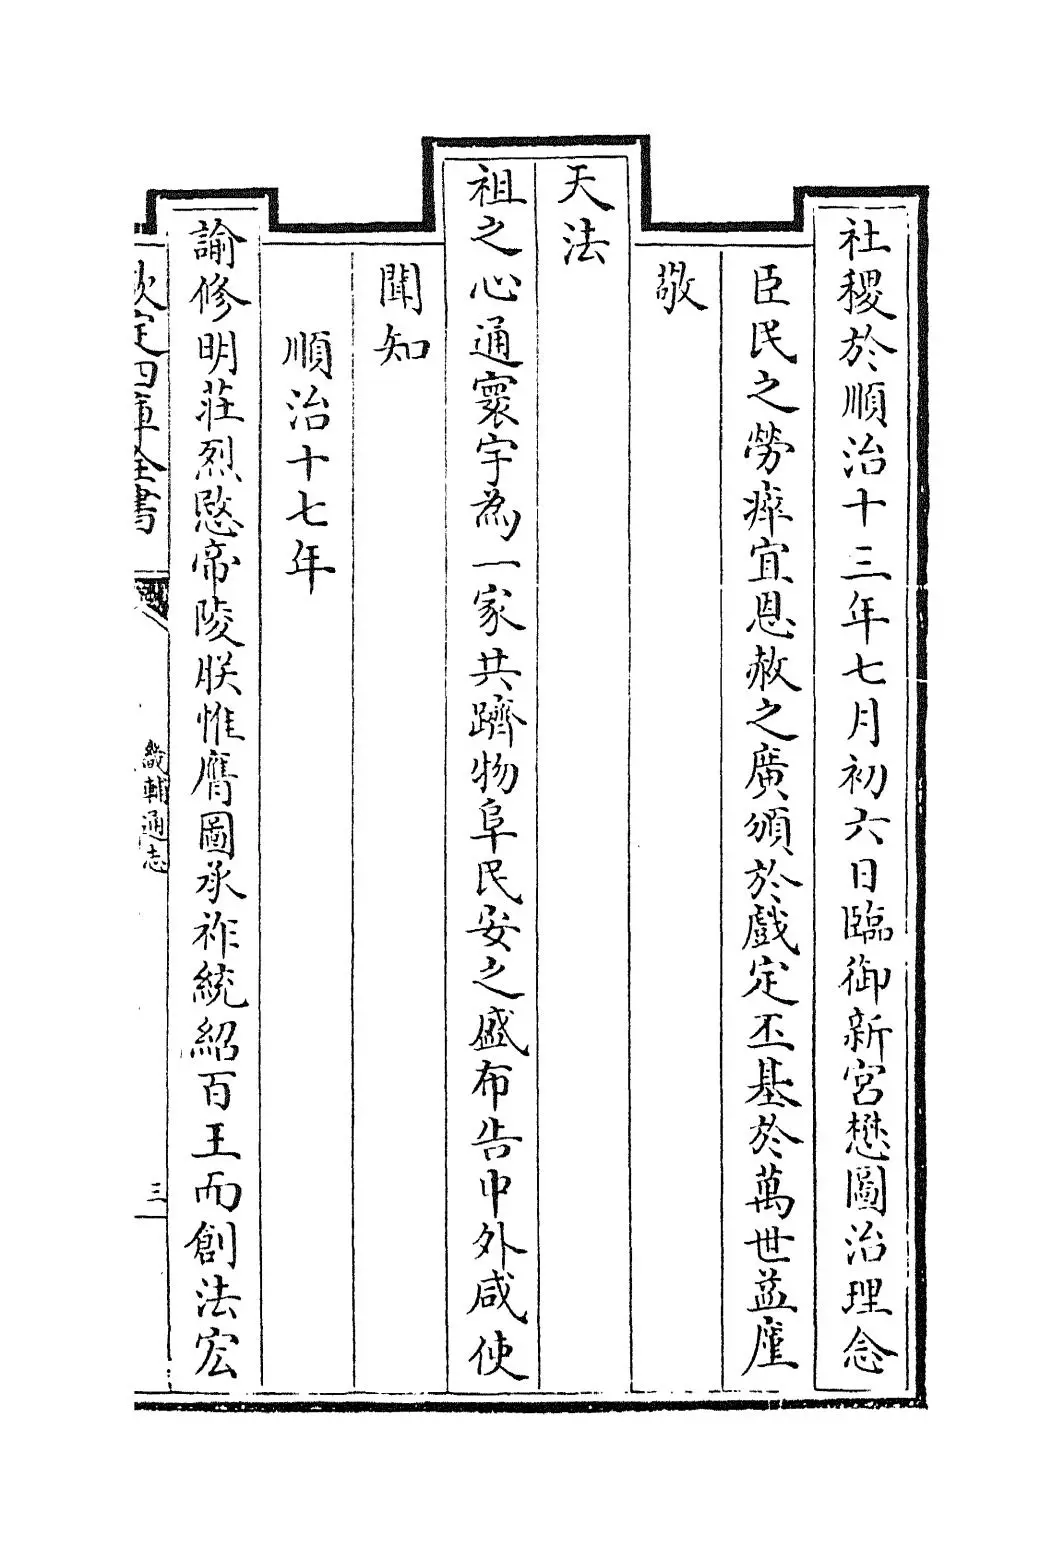 社稷於順治十三年七月初六日臨御新宮懋圖治理念
臣民之勞瘁宜恩赦之廣頒於戲定丕基於萬世益廑
敬
天法
祖之心通寰宇為一家共躋物阜民安之盛布告中外咸使
聞知
順治十七年
諭修明莊烈愍帝陵朕惟膺圖承祚統紹百王而創法宏
欽定四庫全書
畿輔通志
三